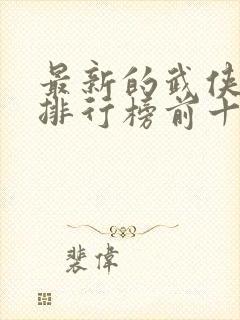 最新的武侠
排行榜前十
裴偉